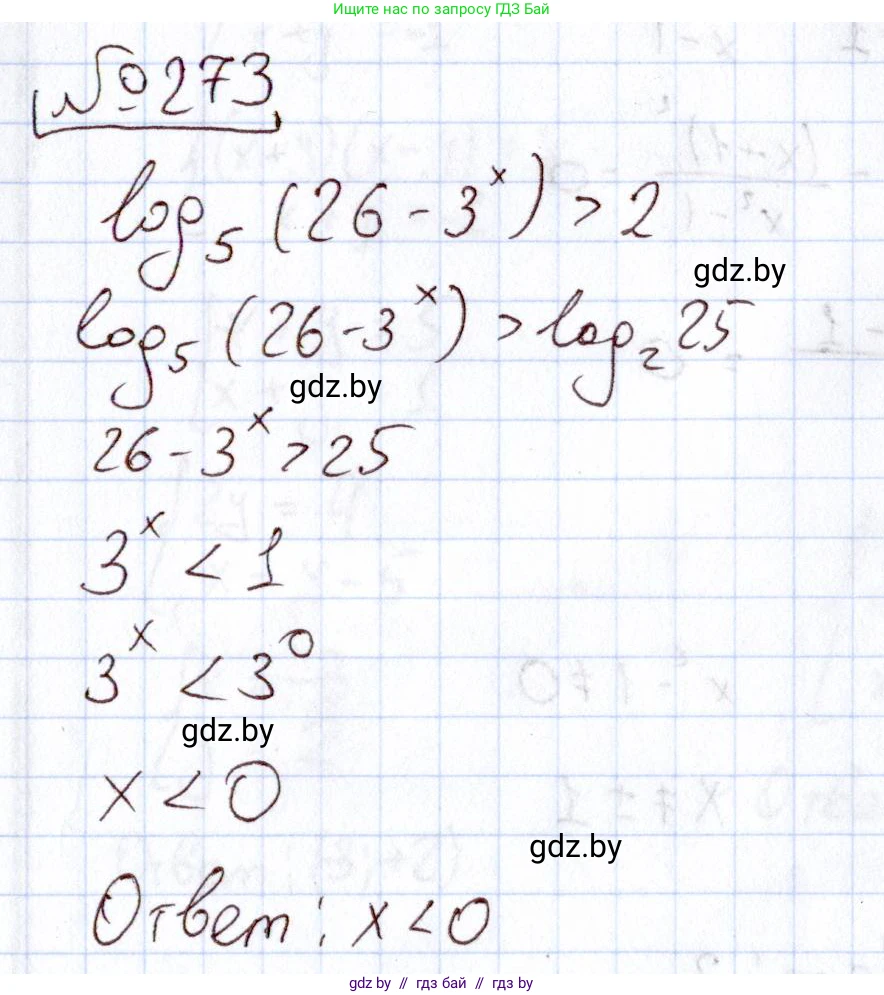 Ищите нас по запросу ГДЗ Бай
№ 273
log₅ (26 - 3ˣ) > 2
gdz.by
log₅ (26 - 3ˣ) > log₂ 25
gdz.by
26 - 3ˣ > 25
3ˣ < 1
3ˣ < 3⁰
gdz.by
x < 0
gdz.by
Ответ: x < 0
gdz.by // гдз бай // gdz.by